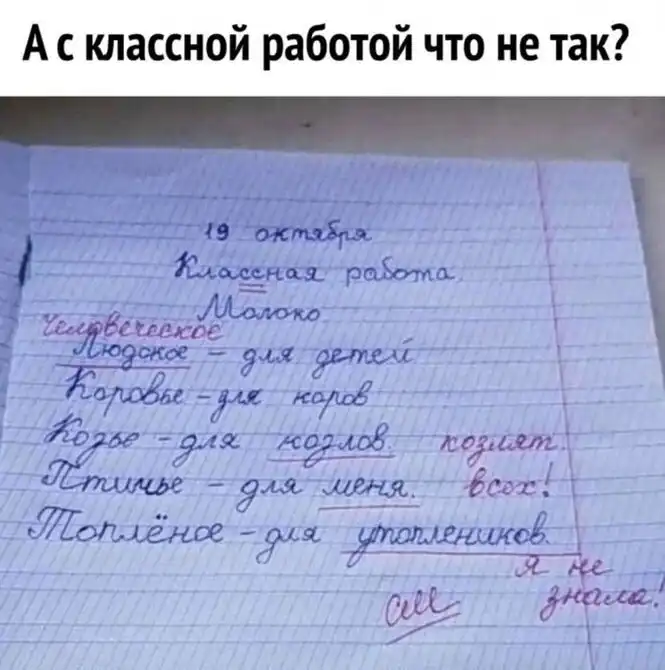 А с классной работой что не так?
19 октября
Классная работа
Молоко
Человеческое
Людское – для детей
Коровье – для коров
Козье – для козлов. козлят.
Птичье – для меня. всех!
Топлёное – для утоплеников.
я не
знала!
см